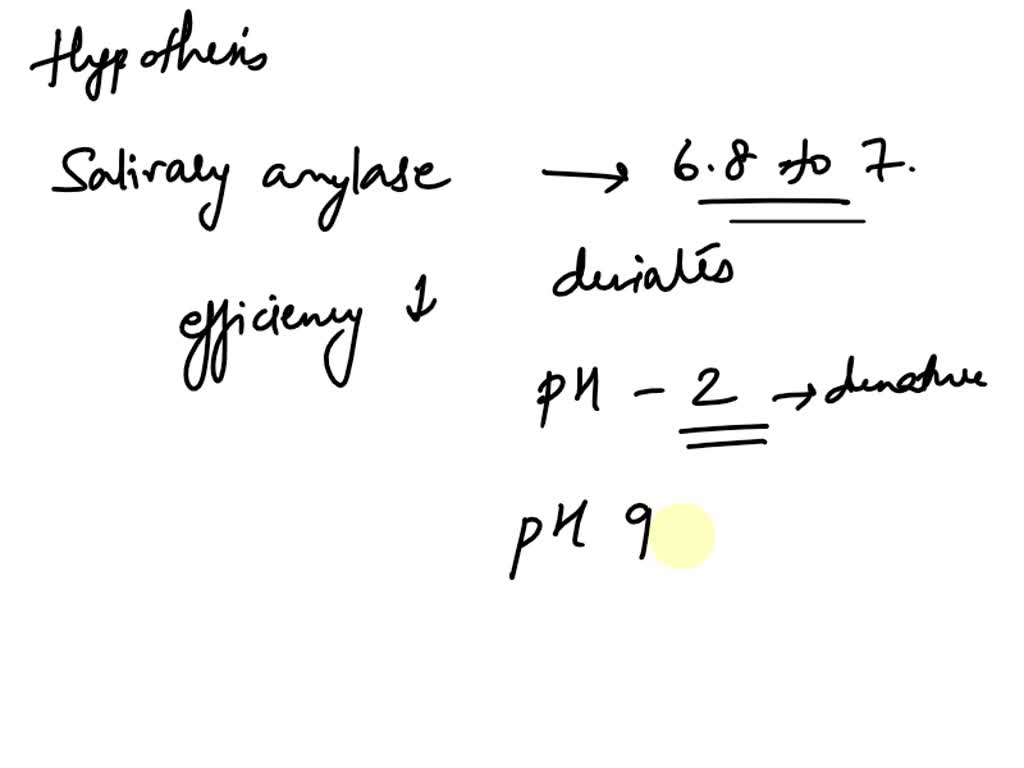 Hypothesis
Salivary amylase → 6.8 to 7.
deviates
efficiency ↓
pH - 2 → denature
pH 9